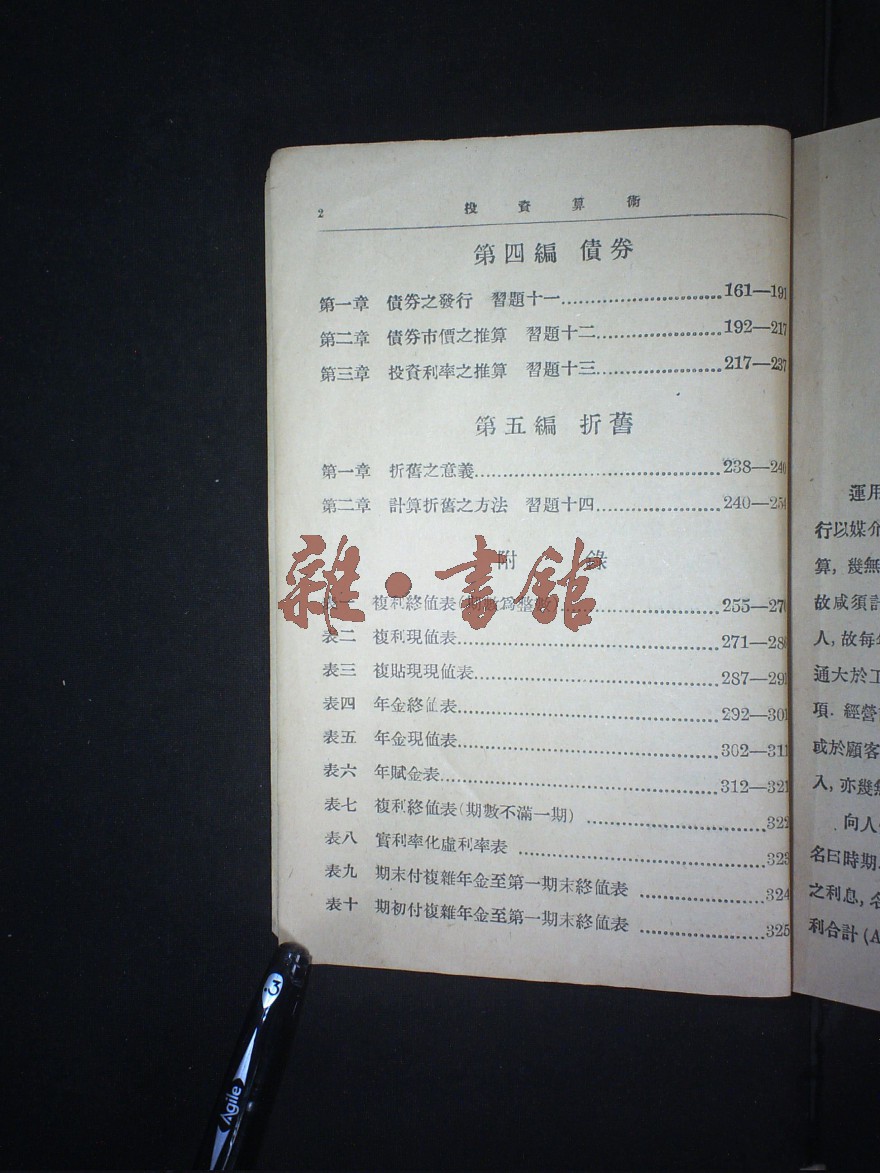 2
投資算術
第四編 債券
第一章 債券之發行 習題十一……………………161—191
第二章 債券市價之推算 習題十二……………………192—217
第三章 投資利率之推算 習題十三……………………217—237
第五編 折舊
第一章 折舊之意義……………………238—240
第二章 計算折舊之方法 習題十四……………………240—254
附錄
雜·書舘
表一 複利終値表(期數爲整數)……………………255—270
表二 複利現値表……………………271—286
表三 複貼現現値表……………………287—291
表四 年金終値表……………………292—301
表五 年金現値表……………………302—311
表六 年賦金表……………………312—321
表七 複利終値表(期數不滿一期)……………………322
表八 實利率化虛利率表……………………323
表九 期末付複雜年金至第一期末終値表……………………324
表十 期初付複雜年金至第一期末終値表……………………325
運用
行以媒介
算, 幾無
故咸須計
人, 故每年
通大於工
項. 經營
或於顧客
入, 亦幾無
向人
名曰時期.
之利息, 名
利合計 (A
.3
Agile